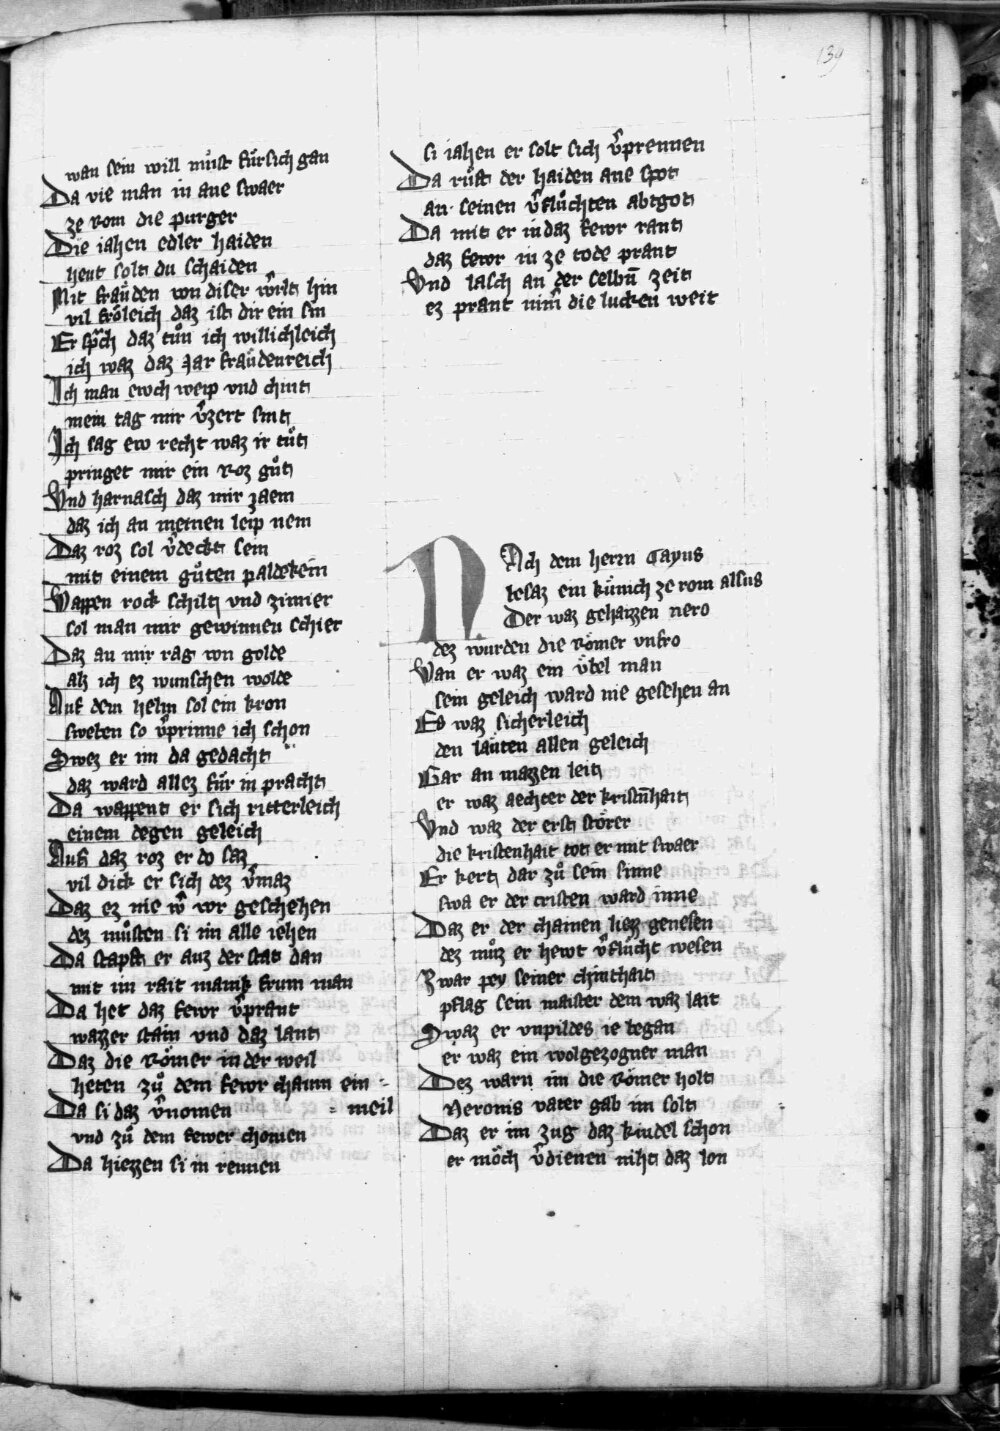 139
wan sein will můst fůrsich gan
Da vie man in ane swaer
ze Rom die purger
Die iahen edler haiden
heut solt du schaiden
Mit fraůden von diser w̃rlt hin
vil fröleich daz ist dir ein sin
Er sp̃ch daz tůn ich willichleich
ich waz daz Jar fraůdenreich
Ich man ewch weip vnd chint
mein tag mir v̂zert sint
Ich sag ew recht waz ir tůt
pringet mir ein Roz gůt
Vnd harnasch daz mir zaem
daz ich an meinen leip nem
Daz roz sol v̂deckt sein
mit einem gůten paldekein
Wappen rock schilt vnd zimier
sol man mir gewinnen schier
Daz an mir rag von golde
alz ich ez wunschen wolde
Auf dem helm sol ein kron
sweben so v̂prinne ich schon
Swez er im da gedacht
daz ward allez fůr in pracht
Da wappent er sich ritterleich
einem degen geleich
Auf daz roz er do saz
vil dick er sich dez v̂maz
Daz ez nie w̃ vor geschehen
dez můsten si im alle iehen
Da stapft er auz der stat dan
mit im rait manik frum man
Da het daz fewr v̂prant
wazzer stain vnd daz lant
Daz die Römer in der weil
heten zů dem fewr chaim ein =
Da si daz v̂nomen = meil
vnd zů dem fewer chomen
Da hiezzen si in rennen
si iahen er solt sich v̂prennen
Da růft der haiden ane spot
an seinen v̂flůchten abtgot
Da mit er in daz fewr rant
daz fewr in ze tode prant
Vnd lasch an der selbñ zeit
ez prant nim̃ die lucken weit
NAch dem herrn Gayus
besaz ein kůnich ze rom alsus
Der waz gehaizzen nero
dez wurden die Römer vnfro
Wan er waz ein v̈bel man
sein geleich ward nie gesehen an
Es waz sicherleich
den laůten allen geleich
Gar an mazzen leit
er waz aechter der kristñhait
Vnd waz der erst störer
die kristenhait tot er mit swaer
Er kert dar zů sein sinne
swa er der cristen ward inne
Daz er der chainen liezz genesen
dez můz er hewt v̂flůcht wesen
Zwar pey seiner chinthait
pflag sein maister dem waz lait
Swaz er vnpildes ie began
er waz ein wolgezogner man
Dez warn im die Römer holt
Neronis vater gab im solt
Daz er im zug daz kindel schon
er möch v̂dienen niht daz lon